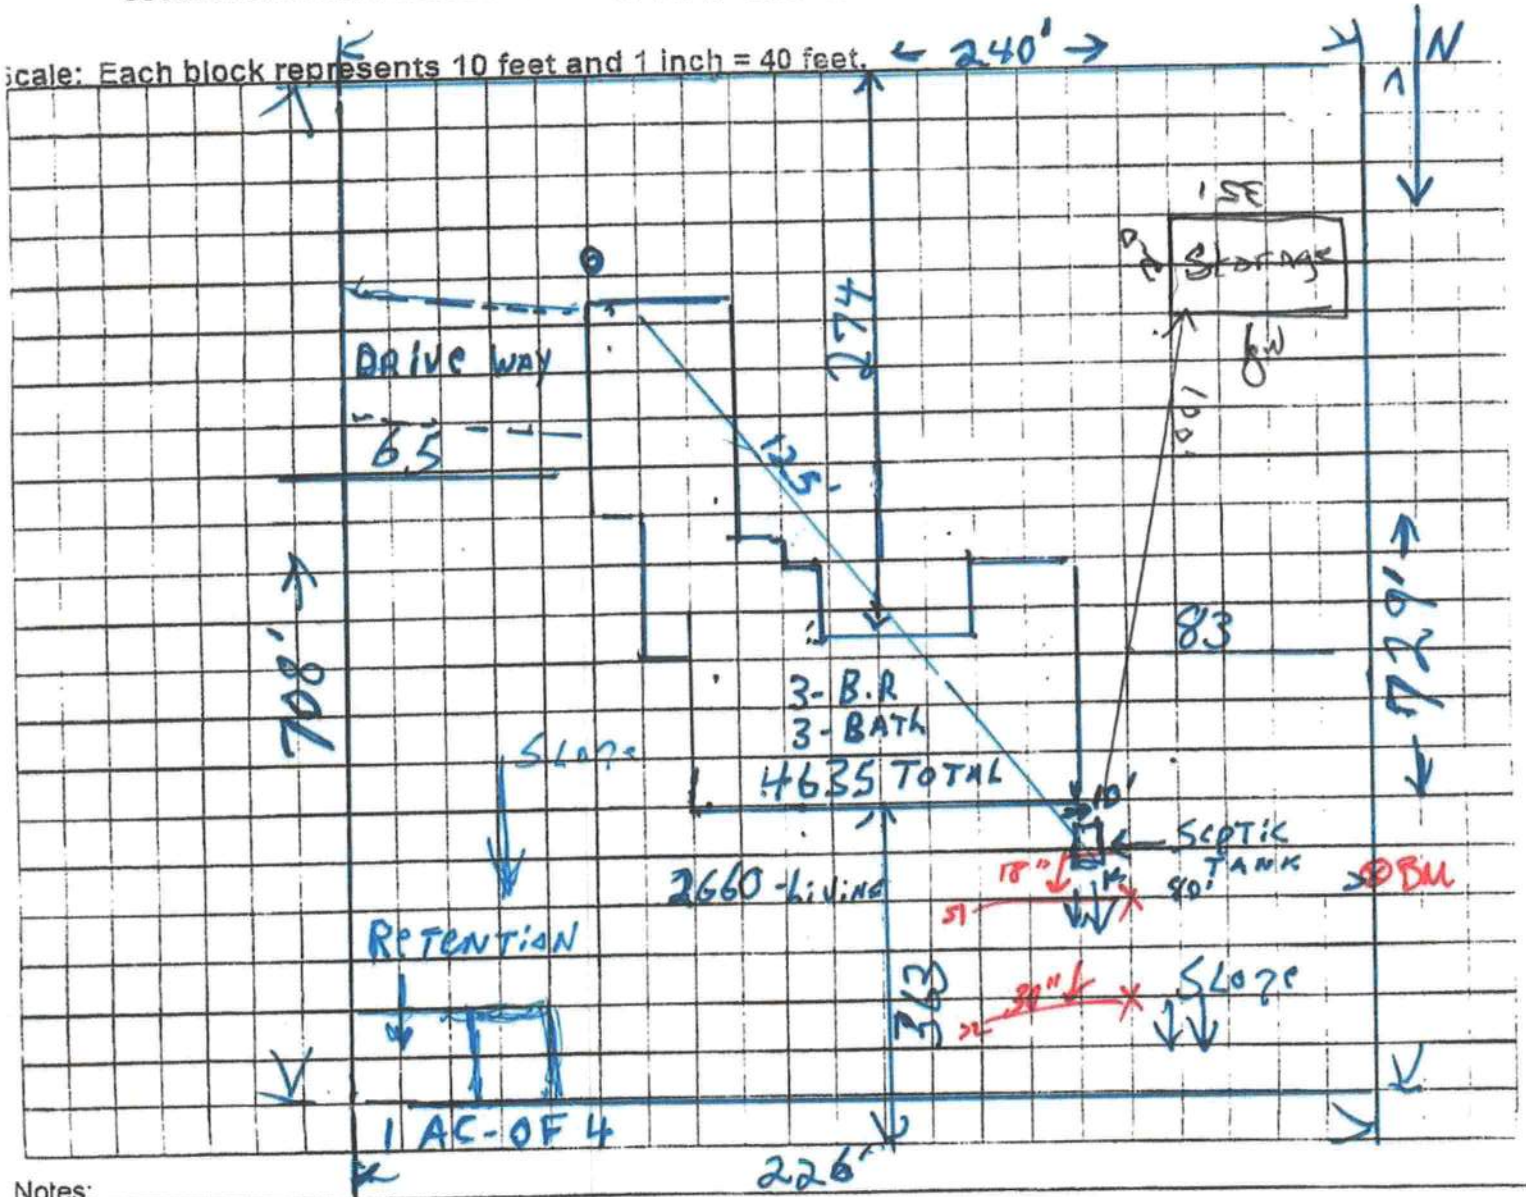 Scale: Each block represents 10 feet and 1 inch = 40 feet.
240'
N
35'
20
Storage
274
DRIVE WAY
65
125'
100'
83
708'
729'
3-B.R
3-BATH
4635 TOTAL
Slope
10'
SEPTIC
TANK
80'
18"
BM
2660-Living
S1
RETENTION
363
30"
S2
Slope
1 AC-OF 4
226'
Notes: